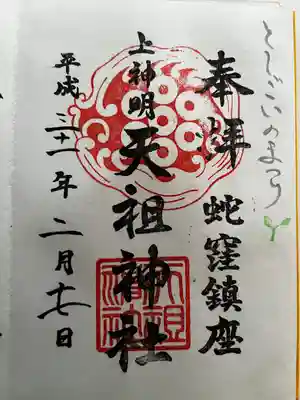 としごいのまつり
奉拝 蛇窪鎮座
上神明 天祖神社
平成三十一年二月十七日
天祖神社